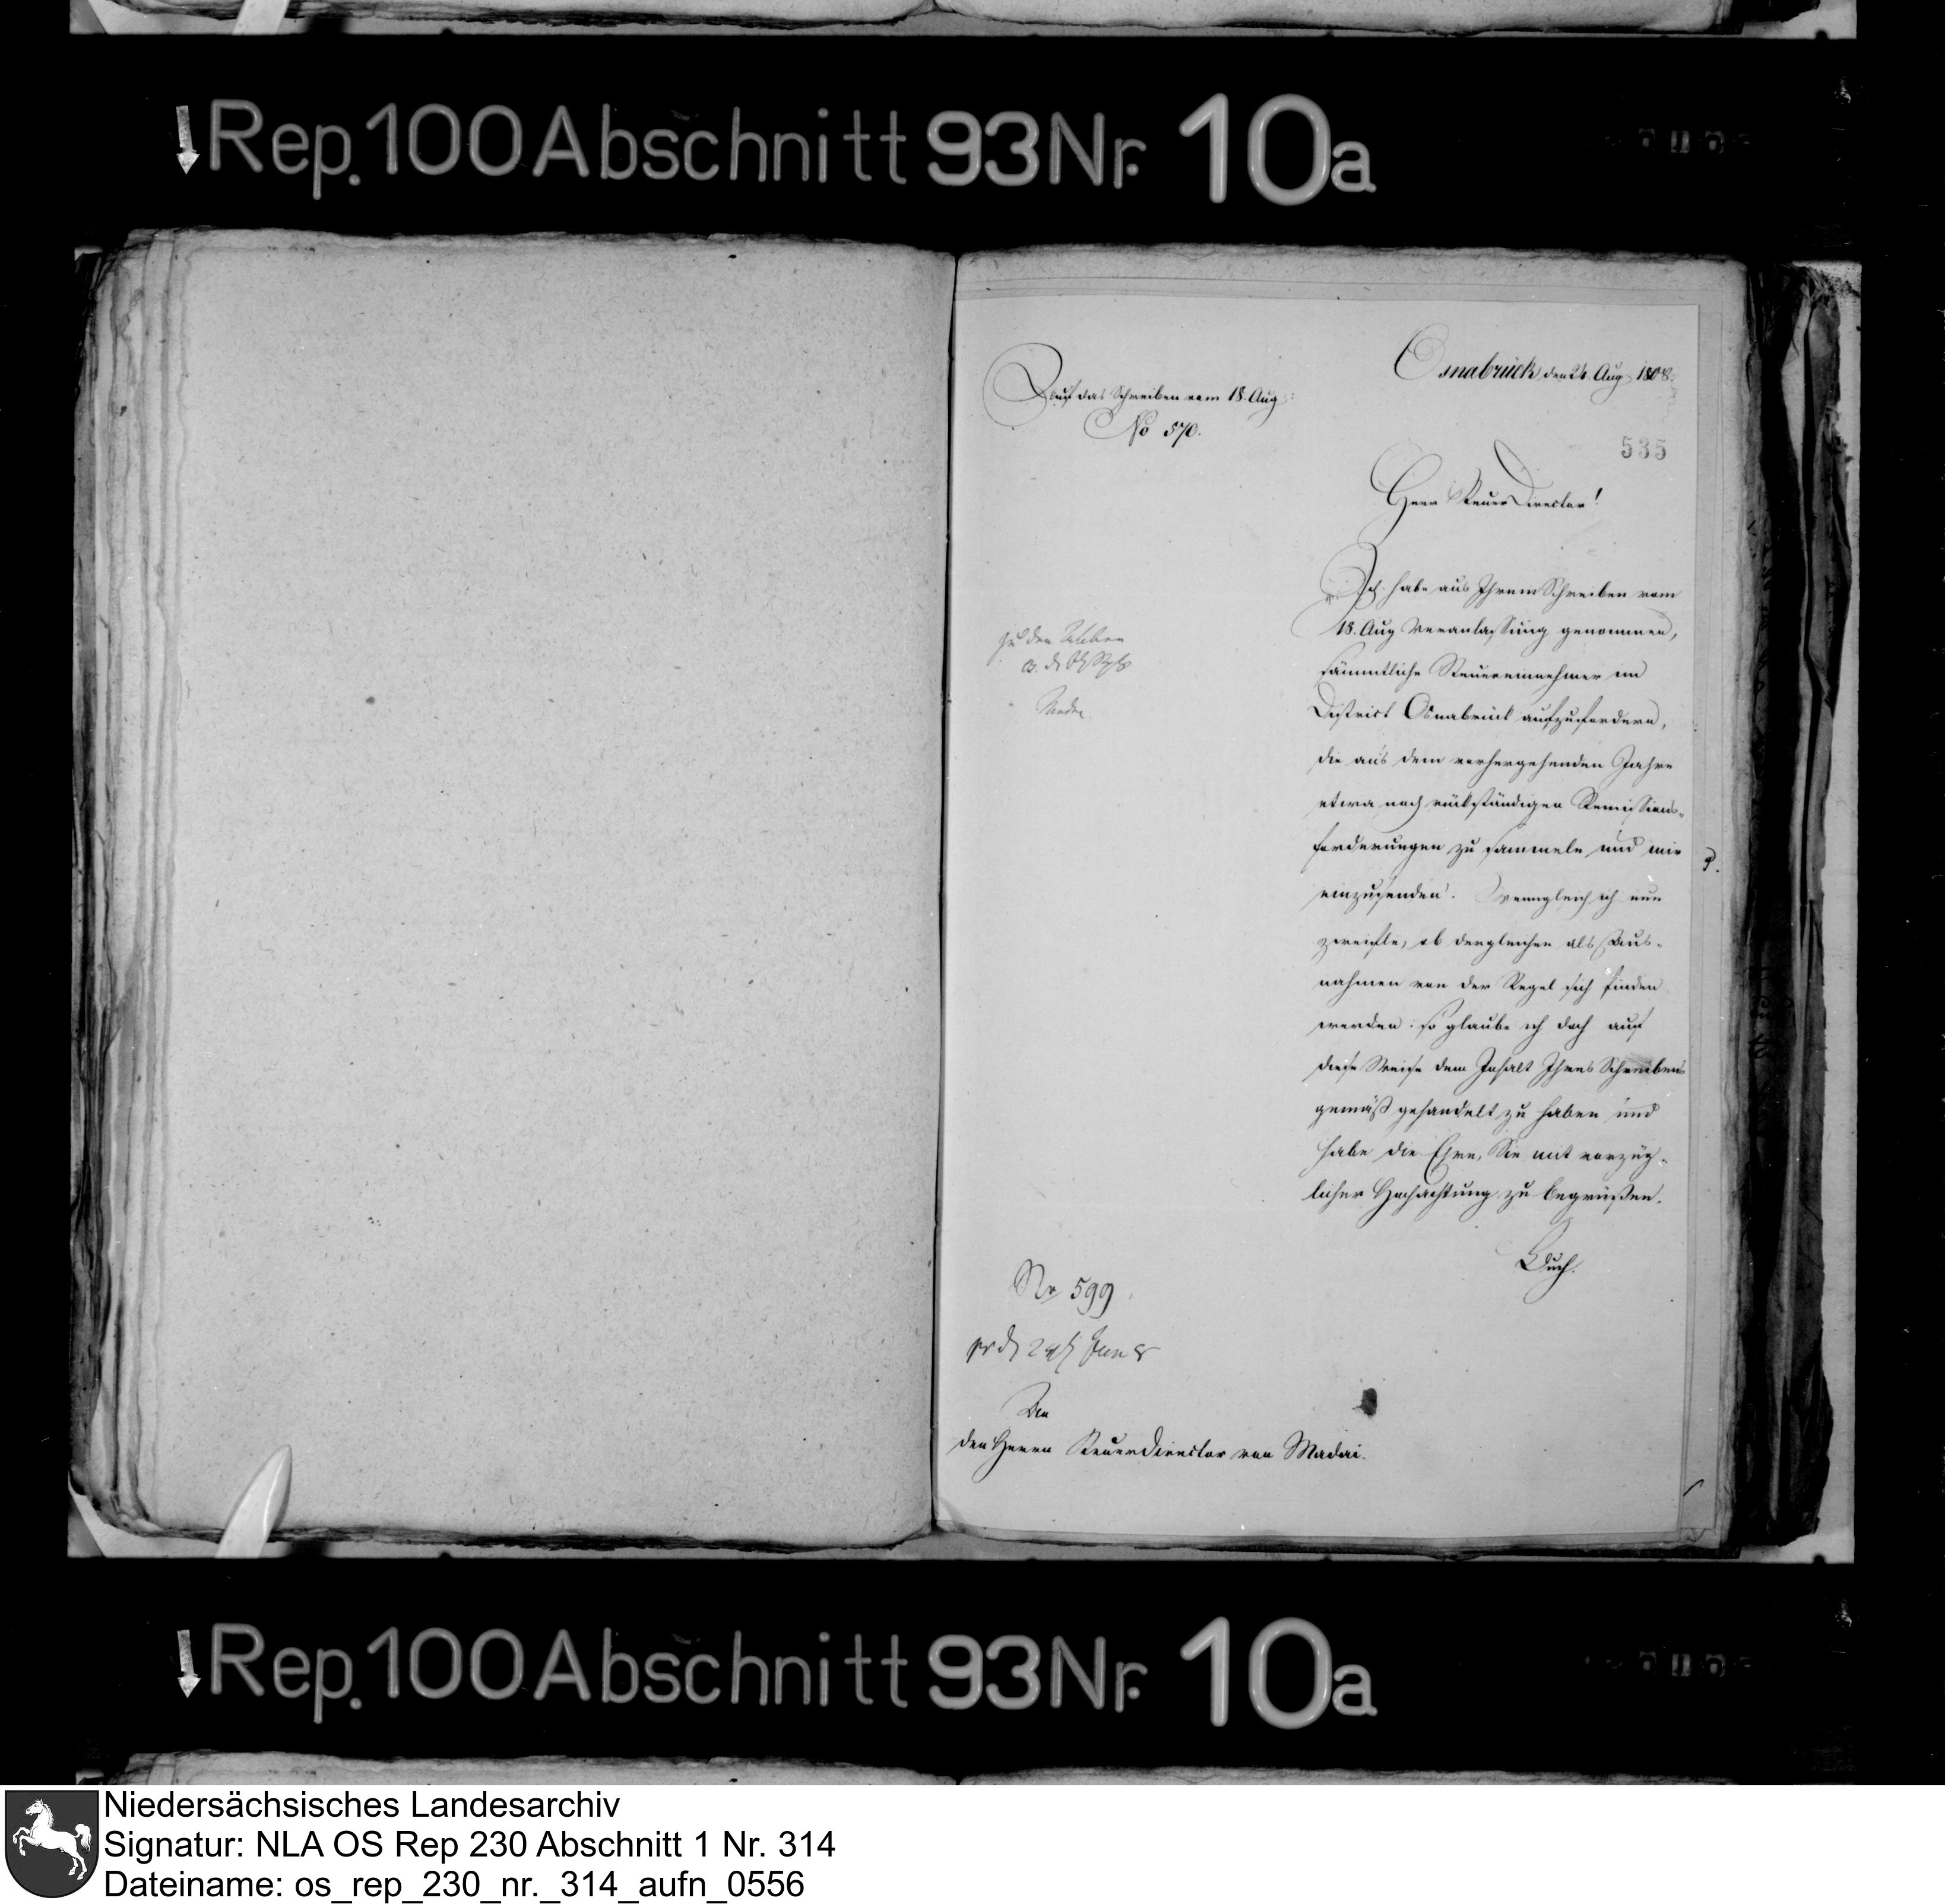 Rep. 100 Abschnitt 93 Nr. 10a
Osnabrück den 24. Aug. 1808.
Auf das Schreiben vom 18. Aug:
No 570.
535
Herr SteuerDirector!
Ich habe aus Ihrem Schreiben vom
18. Aug Veranlassung genommen,
sämmtliche Steuereinnehmer im
District Osnabrück aufzufordern,
die aus dem vorhergehenden Jahre
etwa noch rückständigen Remissions-
forderungen zu sammeln und mir
einzusenden. Wenngleich ich nun
zweifle, ob dergleichen als Aus-
nahmen von der Regel sich finden
werden: so glaube ich doch auf
diese Weise dem Inhalt Ihres Schreibens
gemäß gehandelt zu haben und
habe die Ehre, Sie mit vorzüg-
licher Hochachtung zu begrüßen.
zu den
Madai
Nr 599
An
den Herrn Steuerdirector von Madai.
Rep. 100 Abschnitt 93 Nr. 10a
Niedersächsisches Landesarchiv
Signatur: NLA OS Rep 230 Abschnitt 1 Nr. 314
Dateiname: os_rep_230_nr._314_aufn_0556